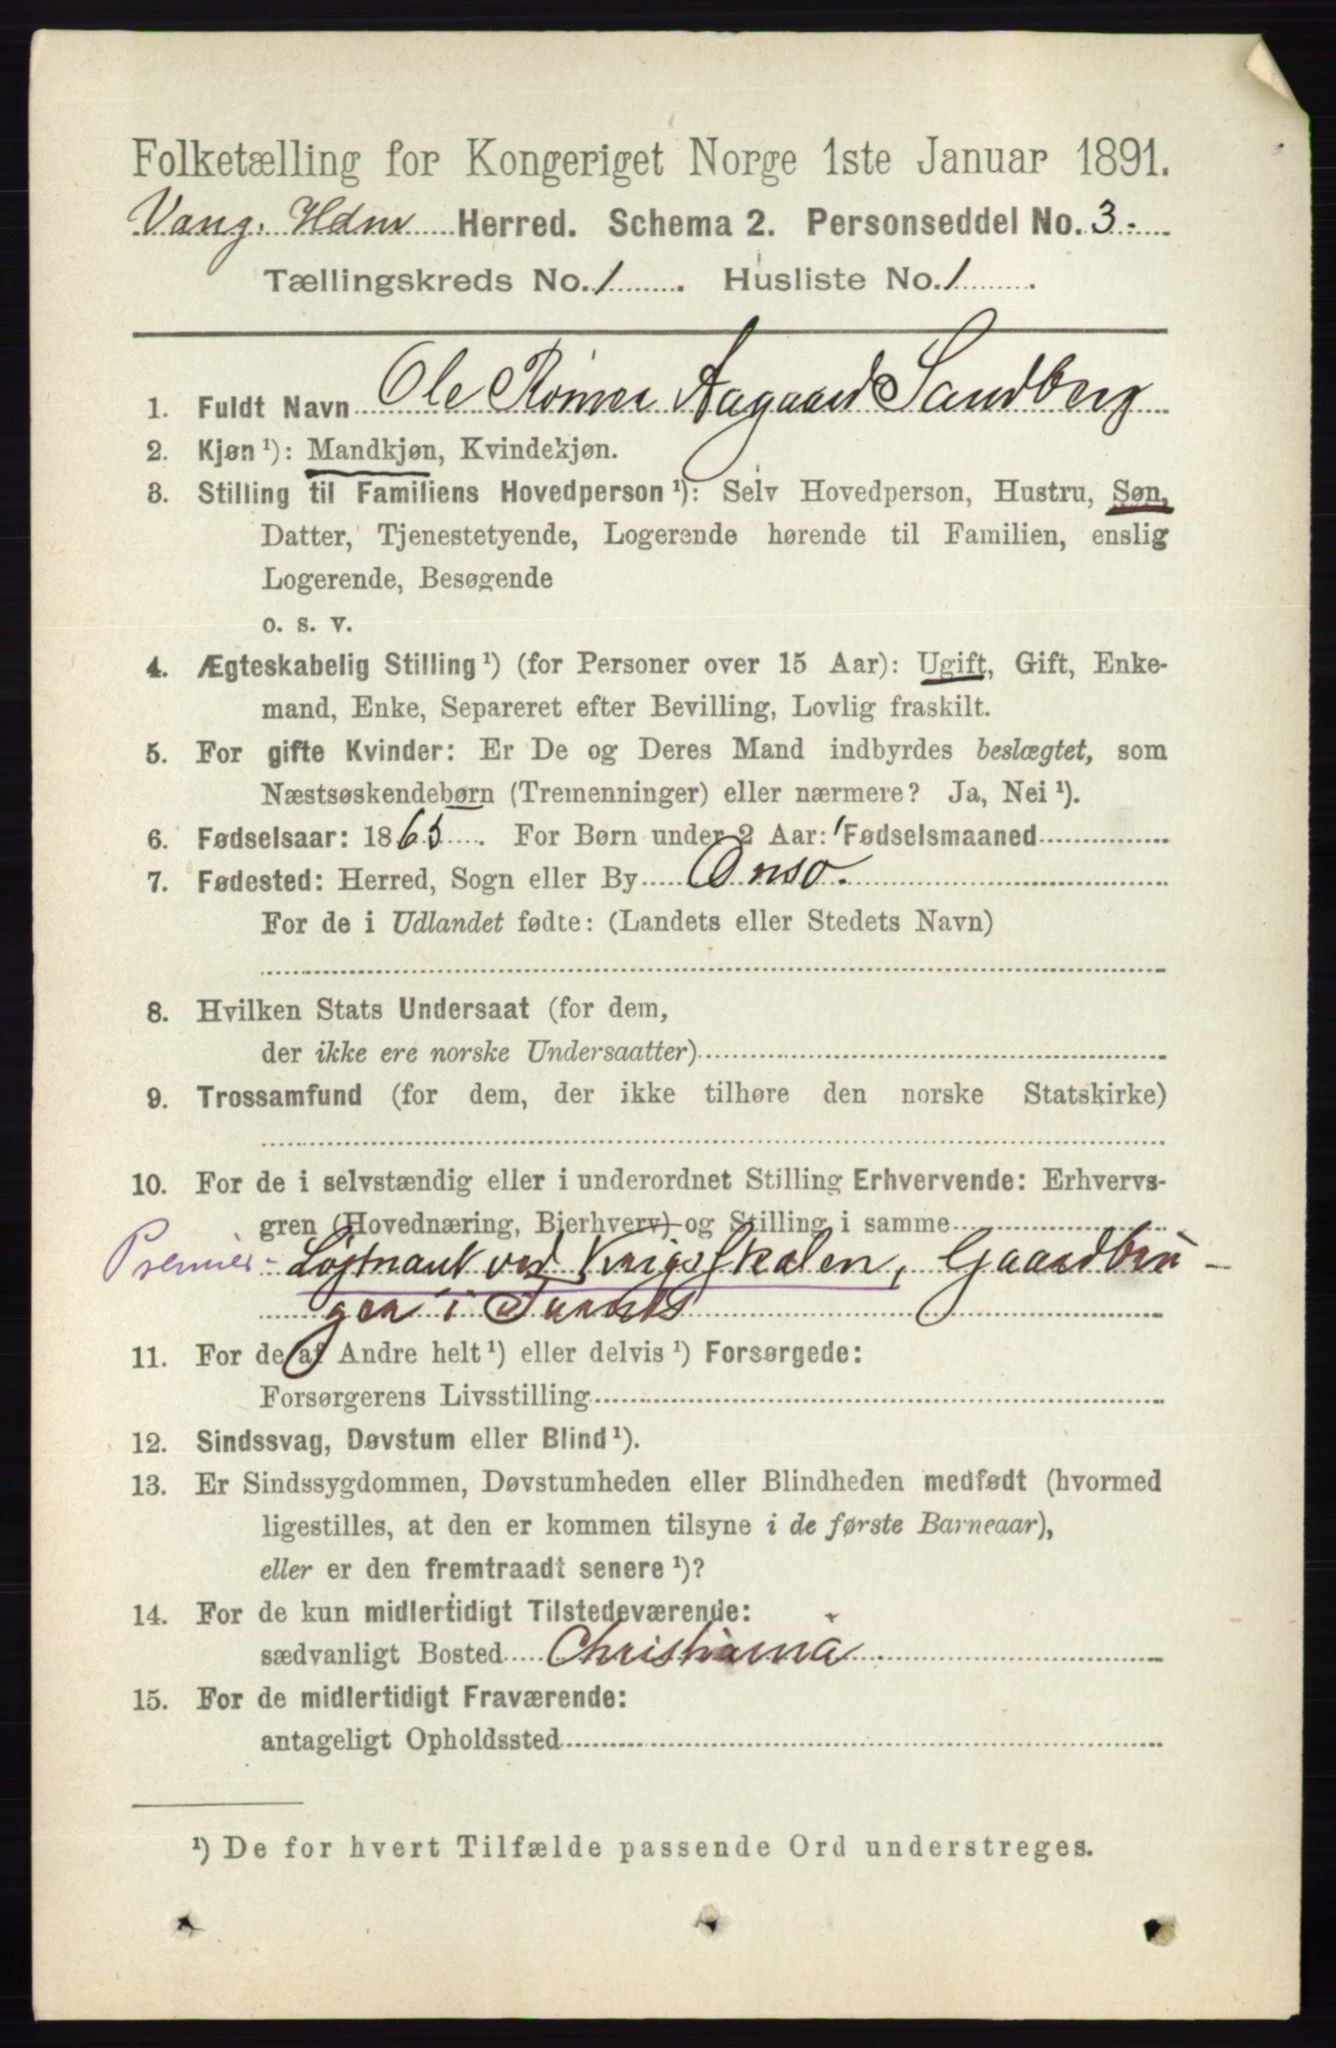 Folketælling for Kongeriget Norge 1ste Januar 1891.
Vang, Hdm Herred. Schema 2. Personseddel No. 3.
Tællingskreds No. 1. Husliste No. 1.
1. Fuldt Navn Ole Rømer Aagaard Sandberg
2. Kjøn ¹): Mandkjøn, Kvindekjøn.
3. Stilling til Familiens Hovedperson ¹): Selv Hovedperson, Hustru, Søn,
Datter, Tjenestetyende, Logerende hørende til Familien, enslig
Logerende, Besøgende
o. s. v.
4. Ægteskabelig Stilling ¹) (for Personer over 15 Aar): Ugift, Gift, Enke-
mand, Enke, Separeret efter Bevilling, Lovlig fraskilt.
5. For gifte Kvinder: Er De og Deres Mand indbyrdes beslægtet, som
Næstsøskendebørn (Tremenninger) eller nærmere? Ja, Nei ¹).
6. Fødselsaar: 1865. For Børn under 2 Aar: Fødselsmaaned
7. Fødested: Herred, Sogn eller By Onsø.
For de i Udlandet fødte: (Landets eller Stedets Navn)
8. Hvilken Stats Undersaat (for dem,
der ikke ere norske Undersaatter)
9. Trossamfund (for dem, der ikke tilhøre den norske Statskirke)
10. For de i selvstændig eller i underordnet Stilling Erhvervende: Erhvervs-
gren (Hovednæring, Bierhverv) og Stilling i samme
Premier- Løjtnant ved Krigsskolen, Gaardbru-
ger i Furnes
11. For de af Andre helt ¹) eller delvis ¹) Forsørgede:
Forsørgerens Livsstilling
12. Sindssvag, Døvstum eller Blind ¹).
13. Er Sindssygdommen, Døvstumheden eller Blindheden medfødt (hvormed
ligestilles, at den er kommen tilsyne i de første Barneaar),
eller er den fremtraadt senere ¹)?
14. For de kun midlertidigt Tilstedeværende:
sædvanligt Bosted Christiania
15. For de midlertidigt Fraværende:
antageligt Opholdssted
¹) De for hvert Tilfælde passende Ord understreges.